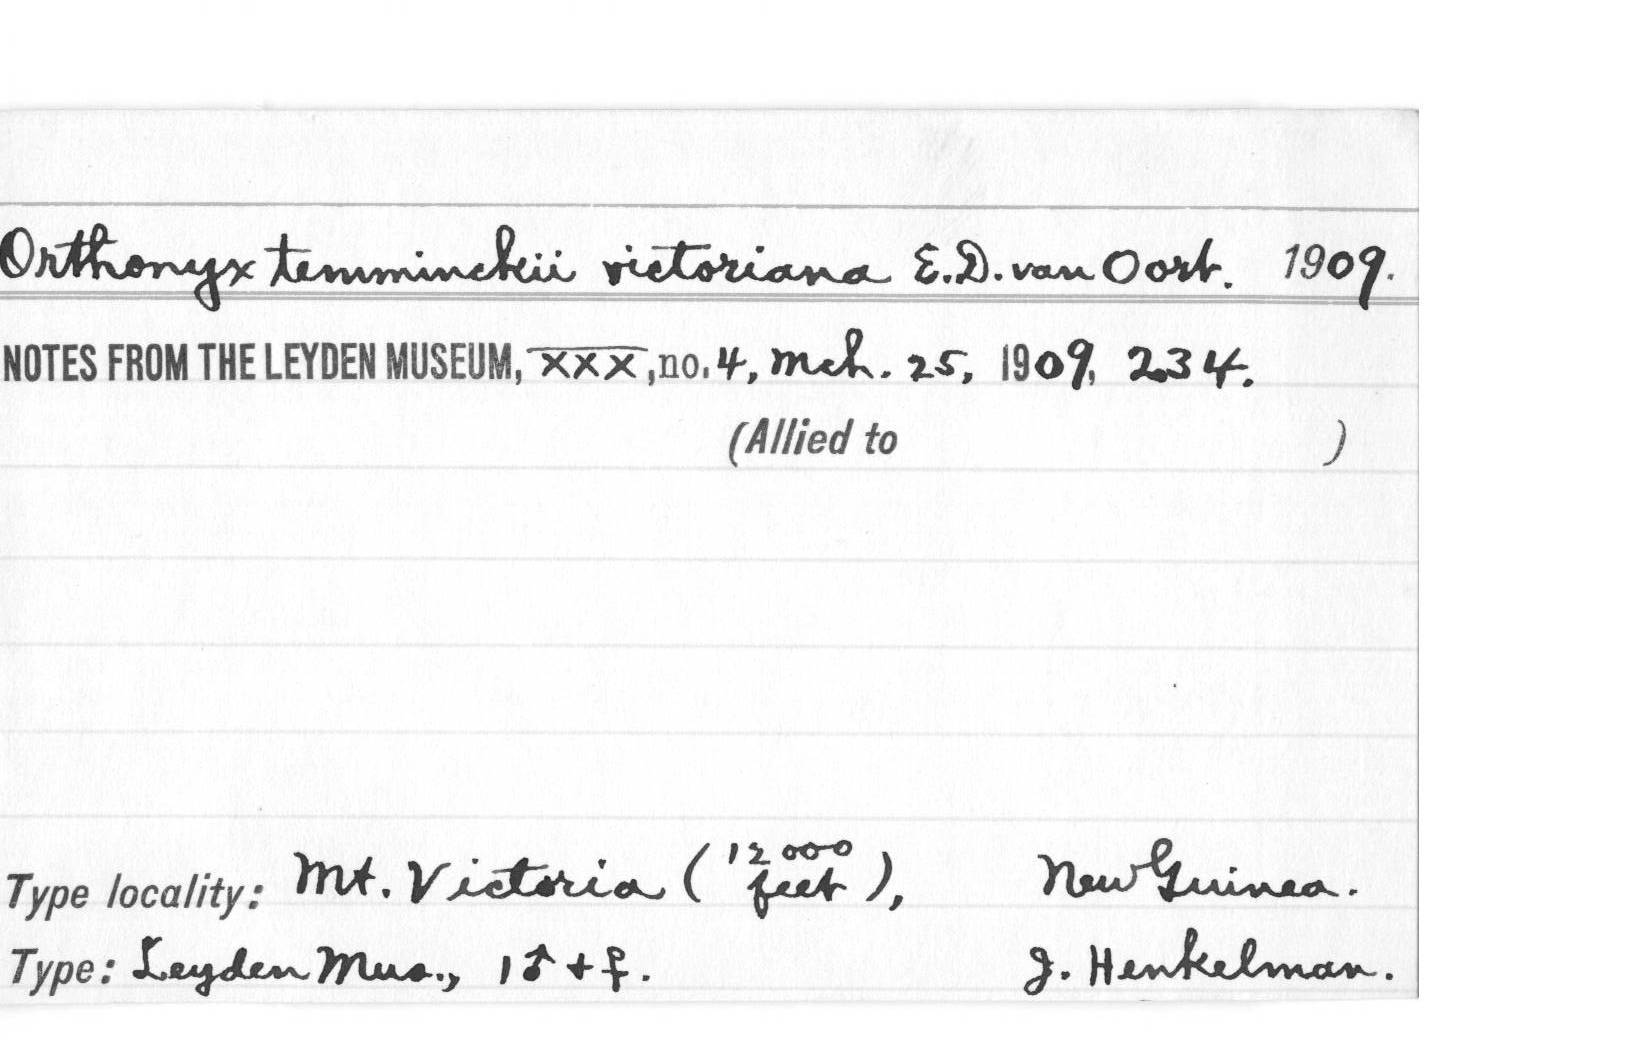 Orthonyx temminckii victoriana E.D. van Oort. 1909.
NOTES FROM THE LEYDEN MUSEUM, XXX, no. 4, Mch. 25, 1909, 234.
(Allied to )
Type locality: Mt. Victoria (12000 feet), New Guinea.
Type: Leyden Mus., 1♂ + ♀. J. Henkelman.